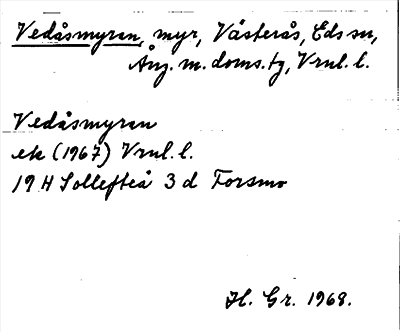 Vedåsmyran, myr, Västerås, Eds sn,
Ång. m. doms.tg, Vrnl. l.
Vedåsmyran
ek (1967) Vrnl. l.
19 H Sollefteå 3 d Forsmo
H. Gr. 1968.